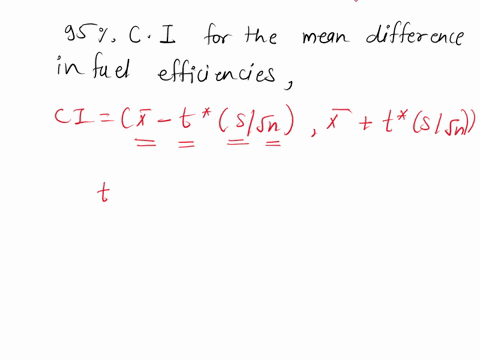 95%. C.I for the mean difference
in fuel efficiencies,
CI = (x̄ - t*(s/√n), x̄ + t*(s/√n))
t